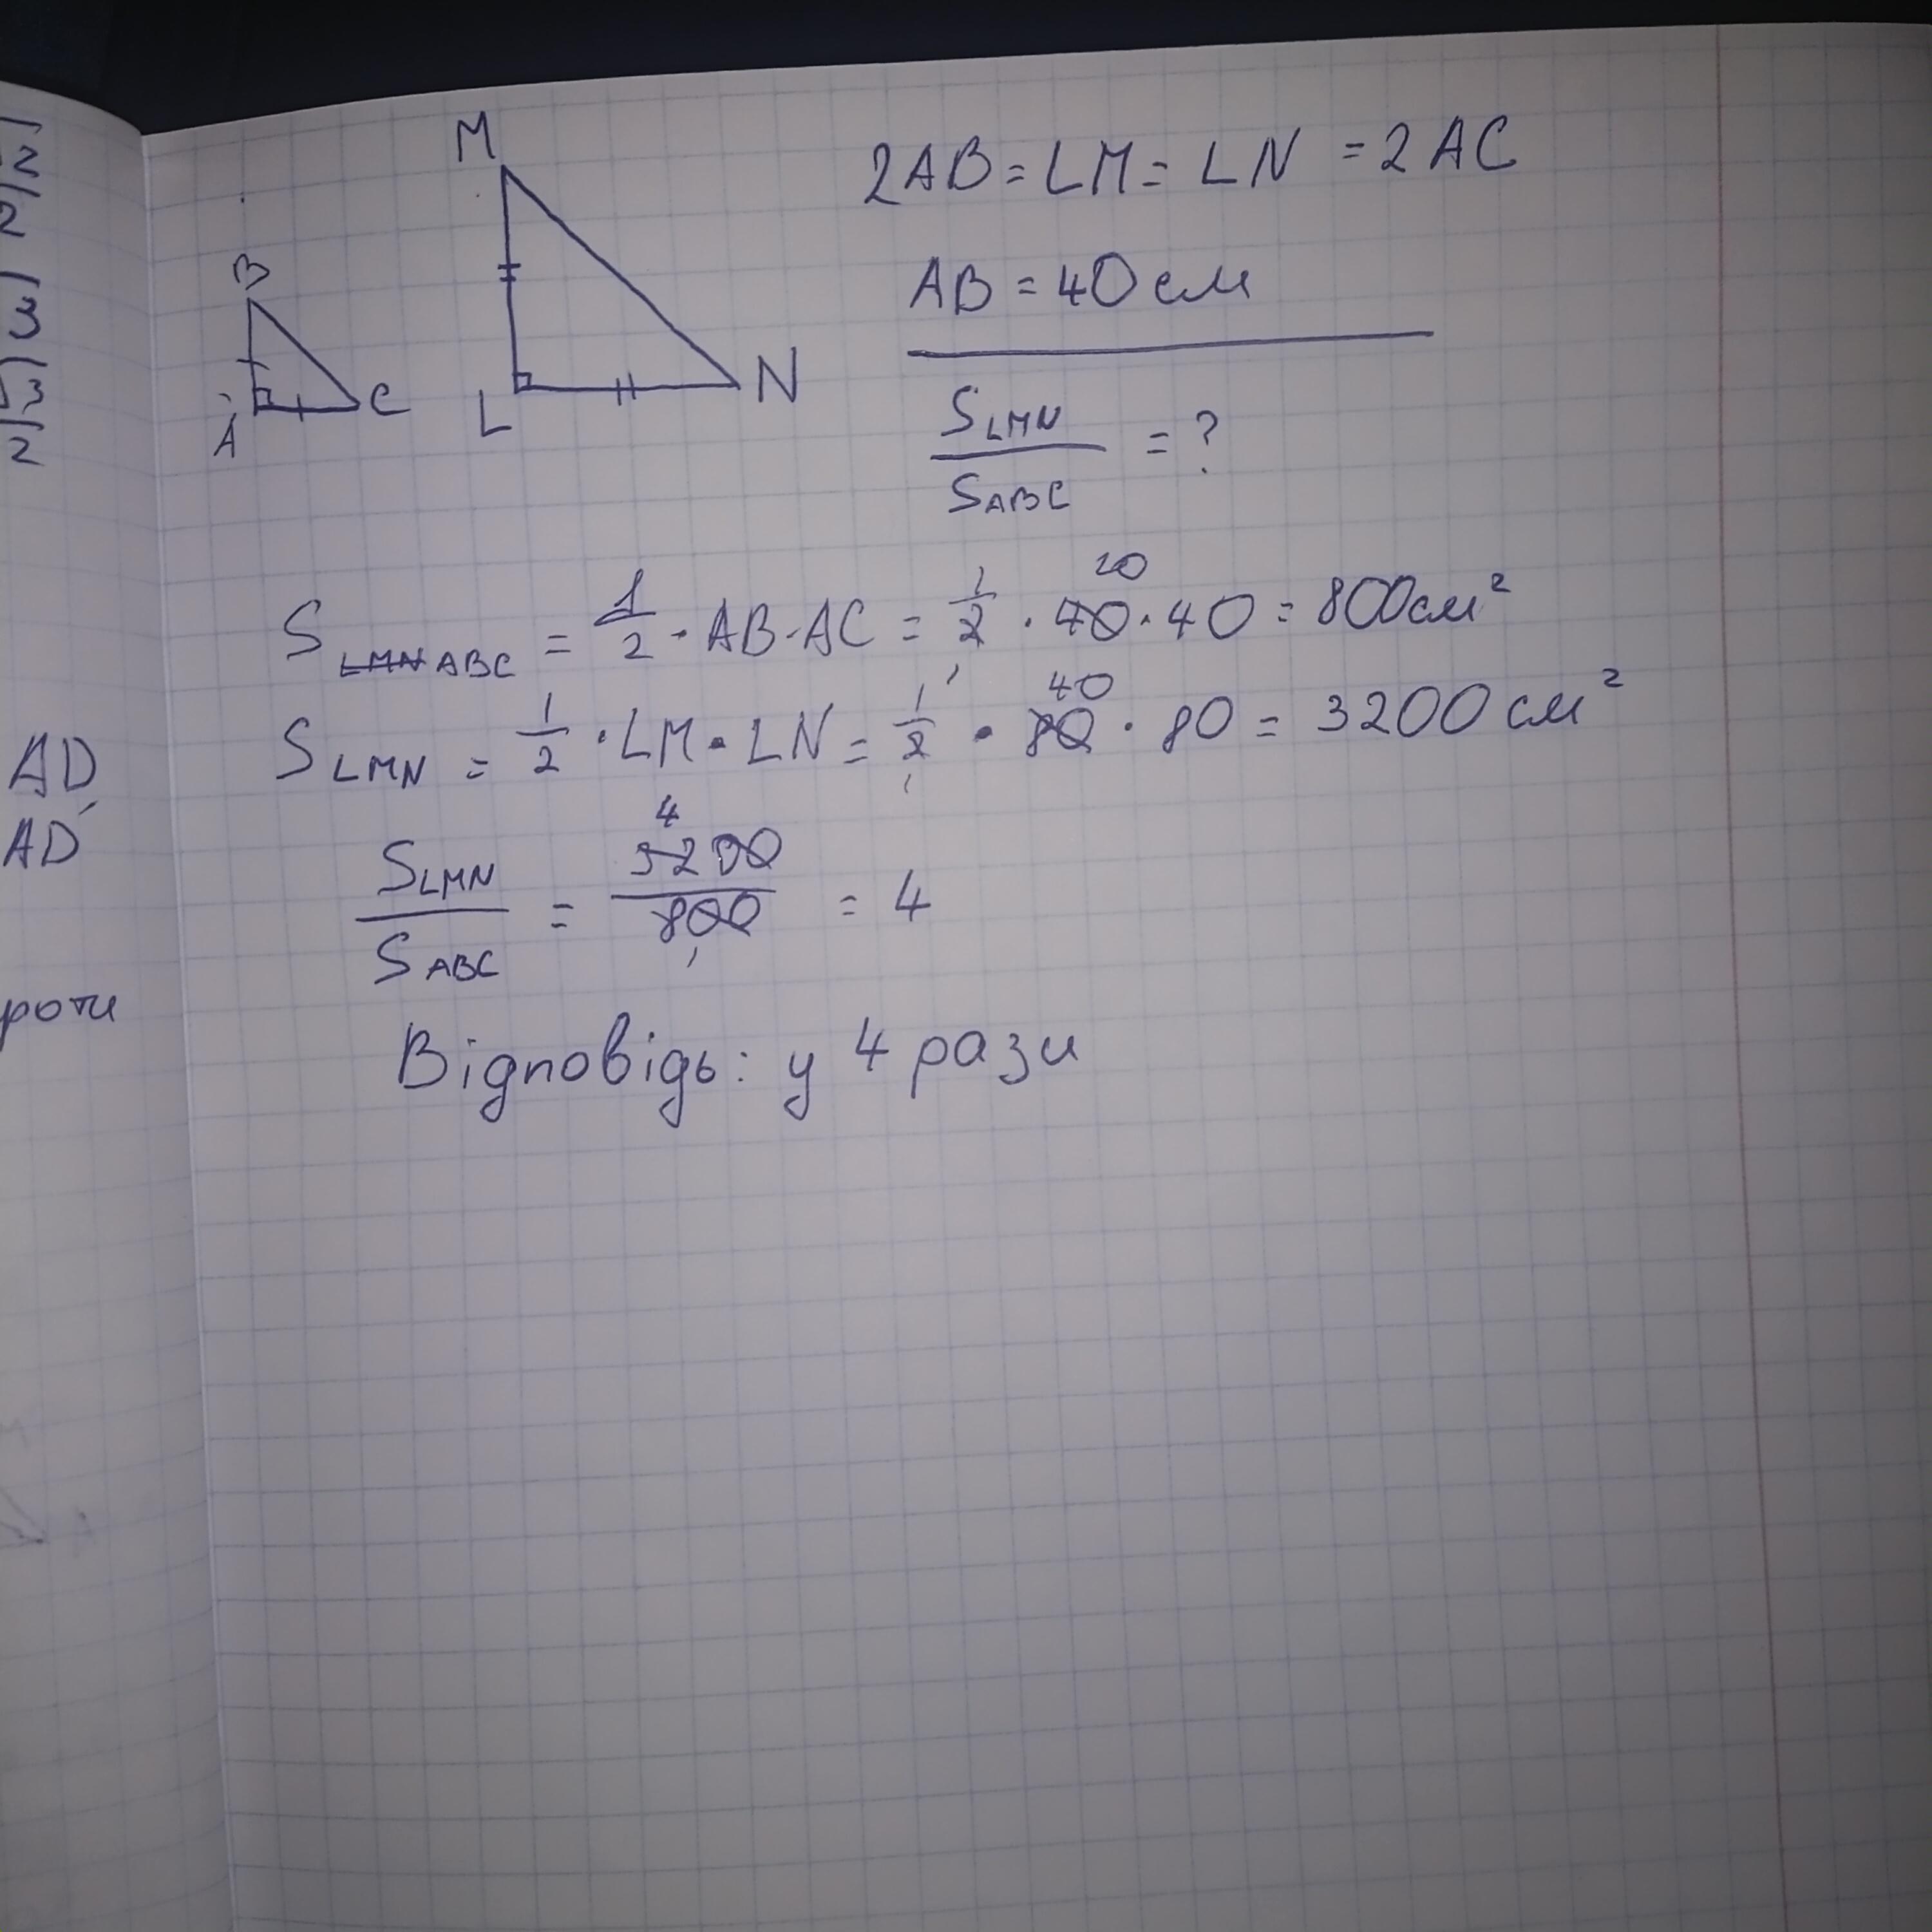 √2
2
3
√3
2
AD,
AD
роти
M
B
A
C
L
N
2AB = LM = LN = 2AC
AB = 40 см
S LMN
S ABC
= ?
S LMN ABC = 1/2 · AB · AC = 1/2 · 40 · 40 = 800 см²
20
1
S LMN = 1/2 · LM · LN = 1/2 · 80 · 80 = 3200 см²
40
1
S LMN / S ABC = 3200 / 800 = 4
4
1
Відповідь: у 4 рази